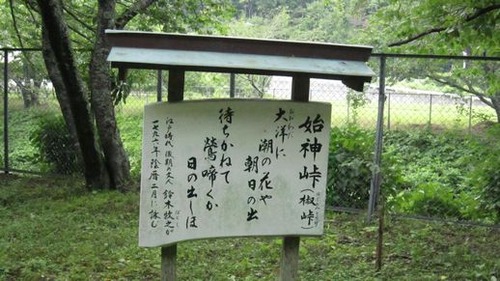 始神峠(椒峠)
大洋に
潮の花や
朝日の出
待ちかねて
鶯啼くか
日の出しほ
江戸時代後期の文人 鈴木牧之が
一七九六年陰暦二月に詠む